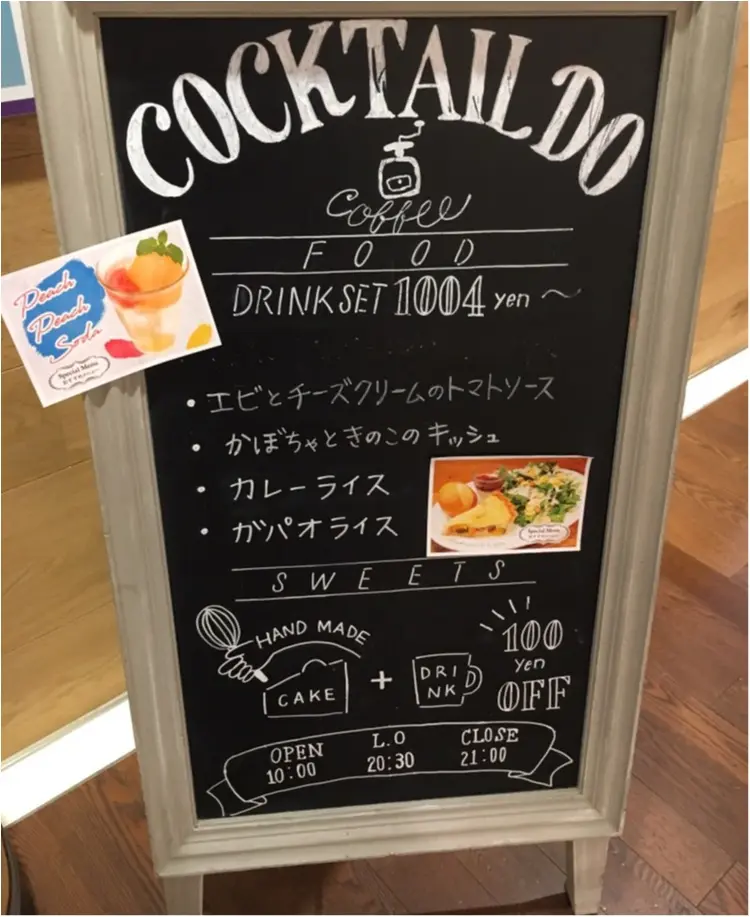 COCKTAIL DO
Coffee
FOOD
DRINK SET 1004 yen 〜
Peach
Peach
Soda
Special Menu
・エビとチーズクリームのトマトソース
・かぼちゃときのこのキッシュ
・カレーライス
・ガパオライス
Special Menu
SWEETS
HAND MADE
CAKE
+
DRI
NK
100
yen
OFF
OPEN
10:00
L.O
20:30
CLOSE
21:00